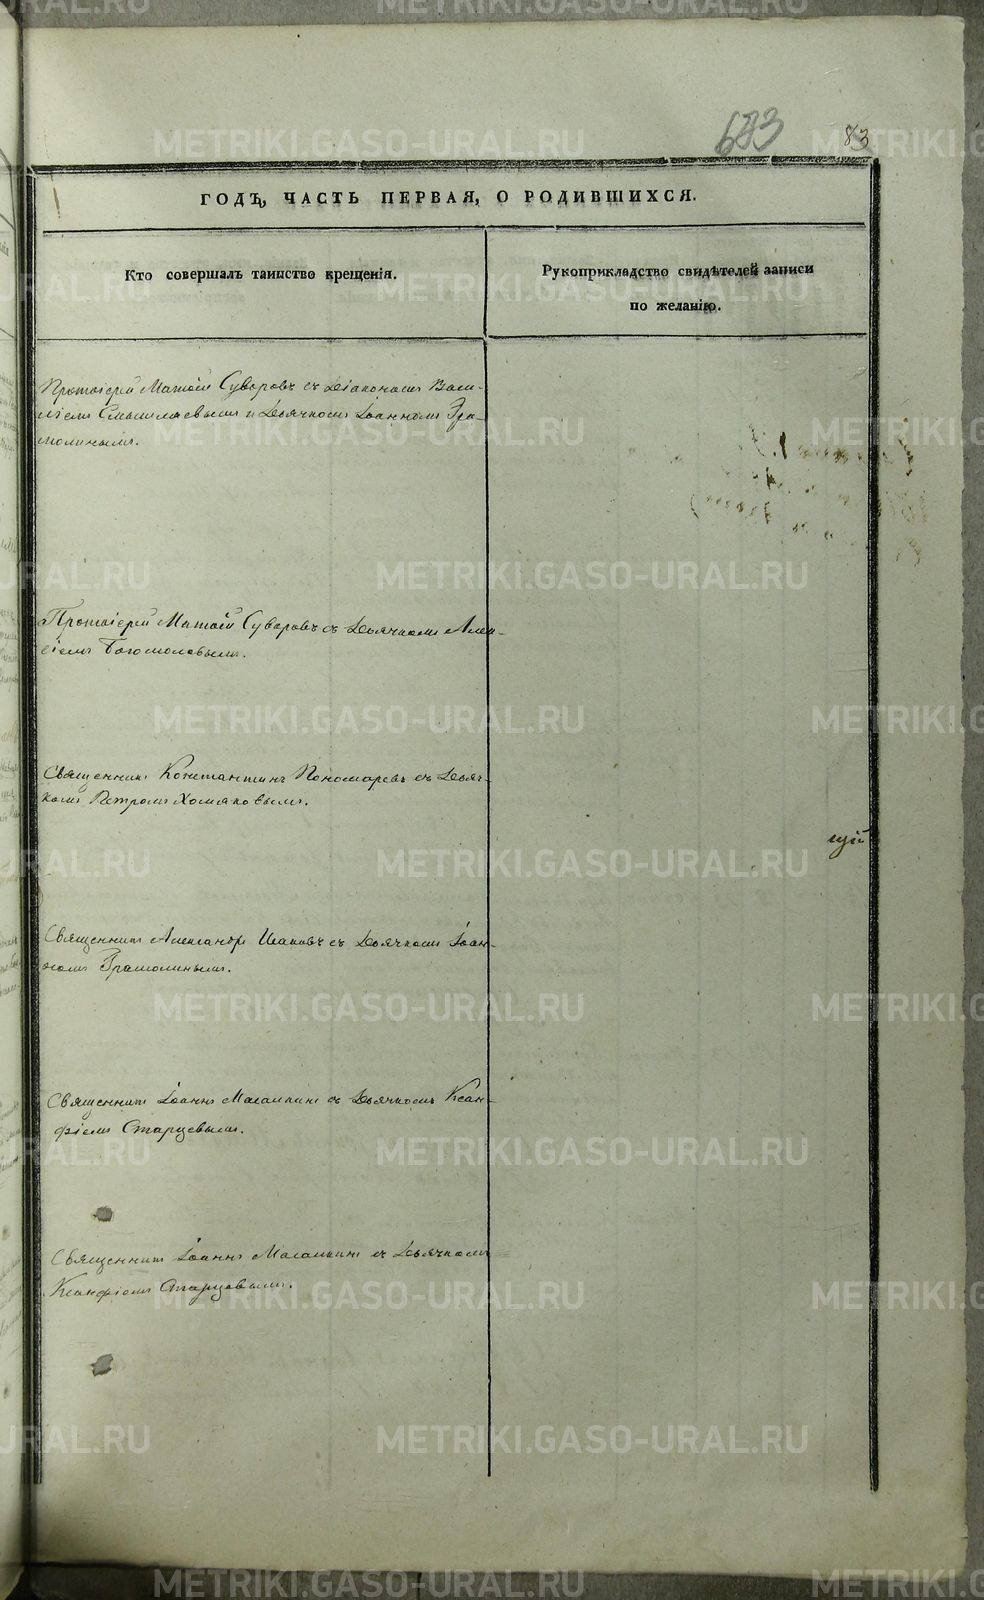 683 83
ГОДЪ, ЧАСТЬ ПЕРВАЯ, О РОДИВШИХСЯ.
Кто совершалъ таинство крещенія.
Рукоприкладство свидѣтелей записи
по желанію.
Протоіерей Матѳій Суворовъ съ Діакономъ Васи-
ліемъ Смышляевымъ и Дьячкомъ Іоанномъ Гра-
молинымъ.
Протоіерей Матѳій Суворовъ съ Дьячкомъ Алек-
сіемъ Богомоловымъ.
Священникъ Константинъ Пономаревъ съ Дьяч-
комъ Петромъ Хомяковымъ.
Священникъ Александръ съ Дьячкомъ Іоан-
номъ Грамолинымъ.
Священникъ Іоаннъ съ Дьячкомъ Ксан-
фіемъ Старцевымъ.
Священникъ Іоаннъ съ Дьячкомъ
Ксанфіемъ Старцовымъ.
METRIKI.GASO-URAL.RU